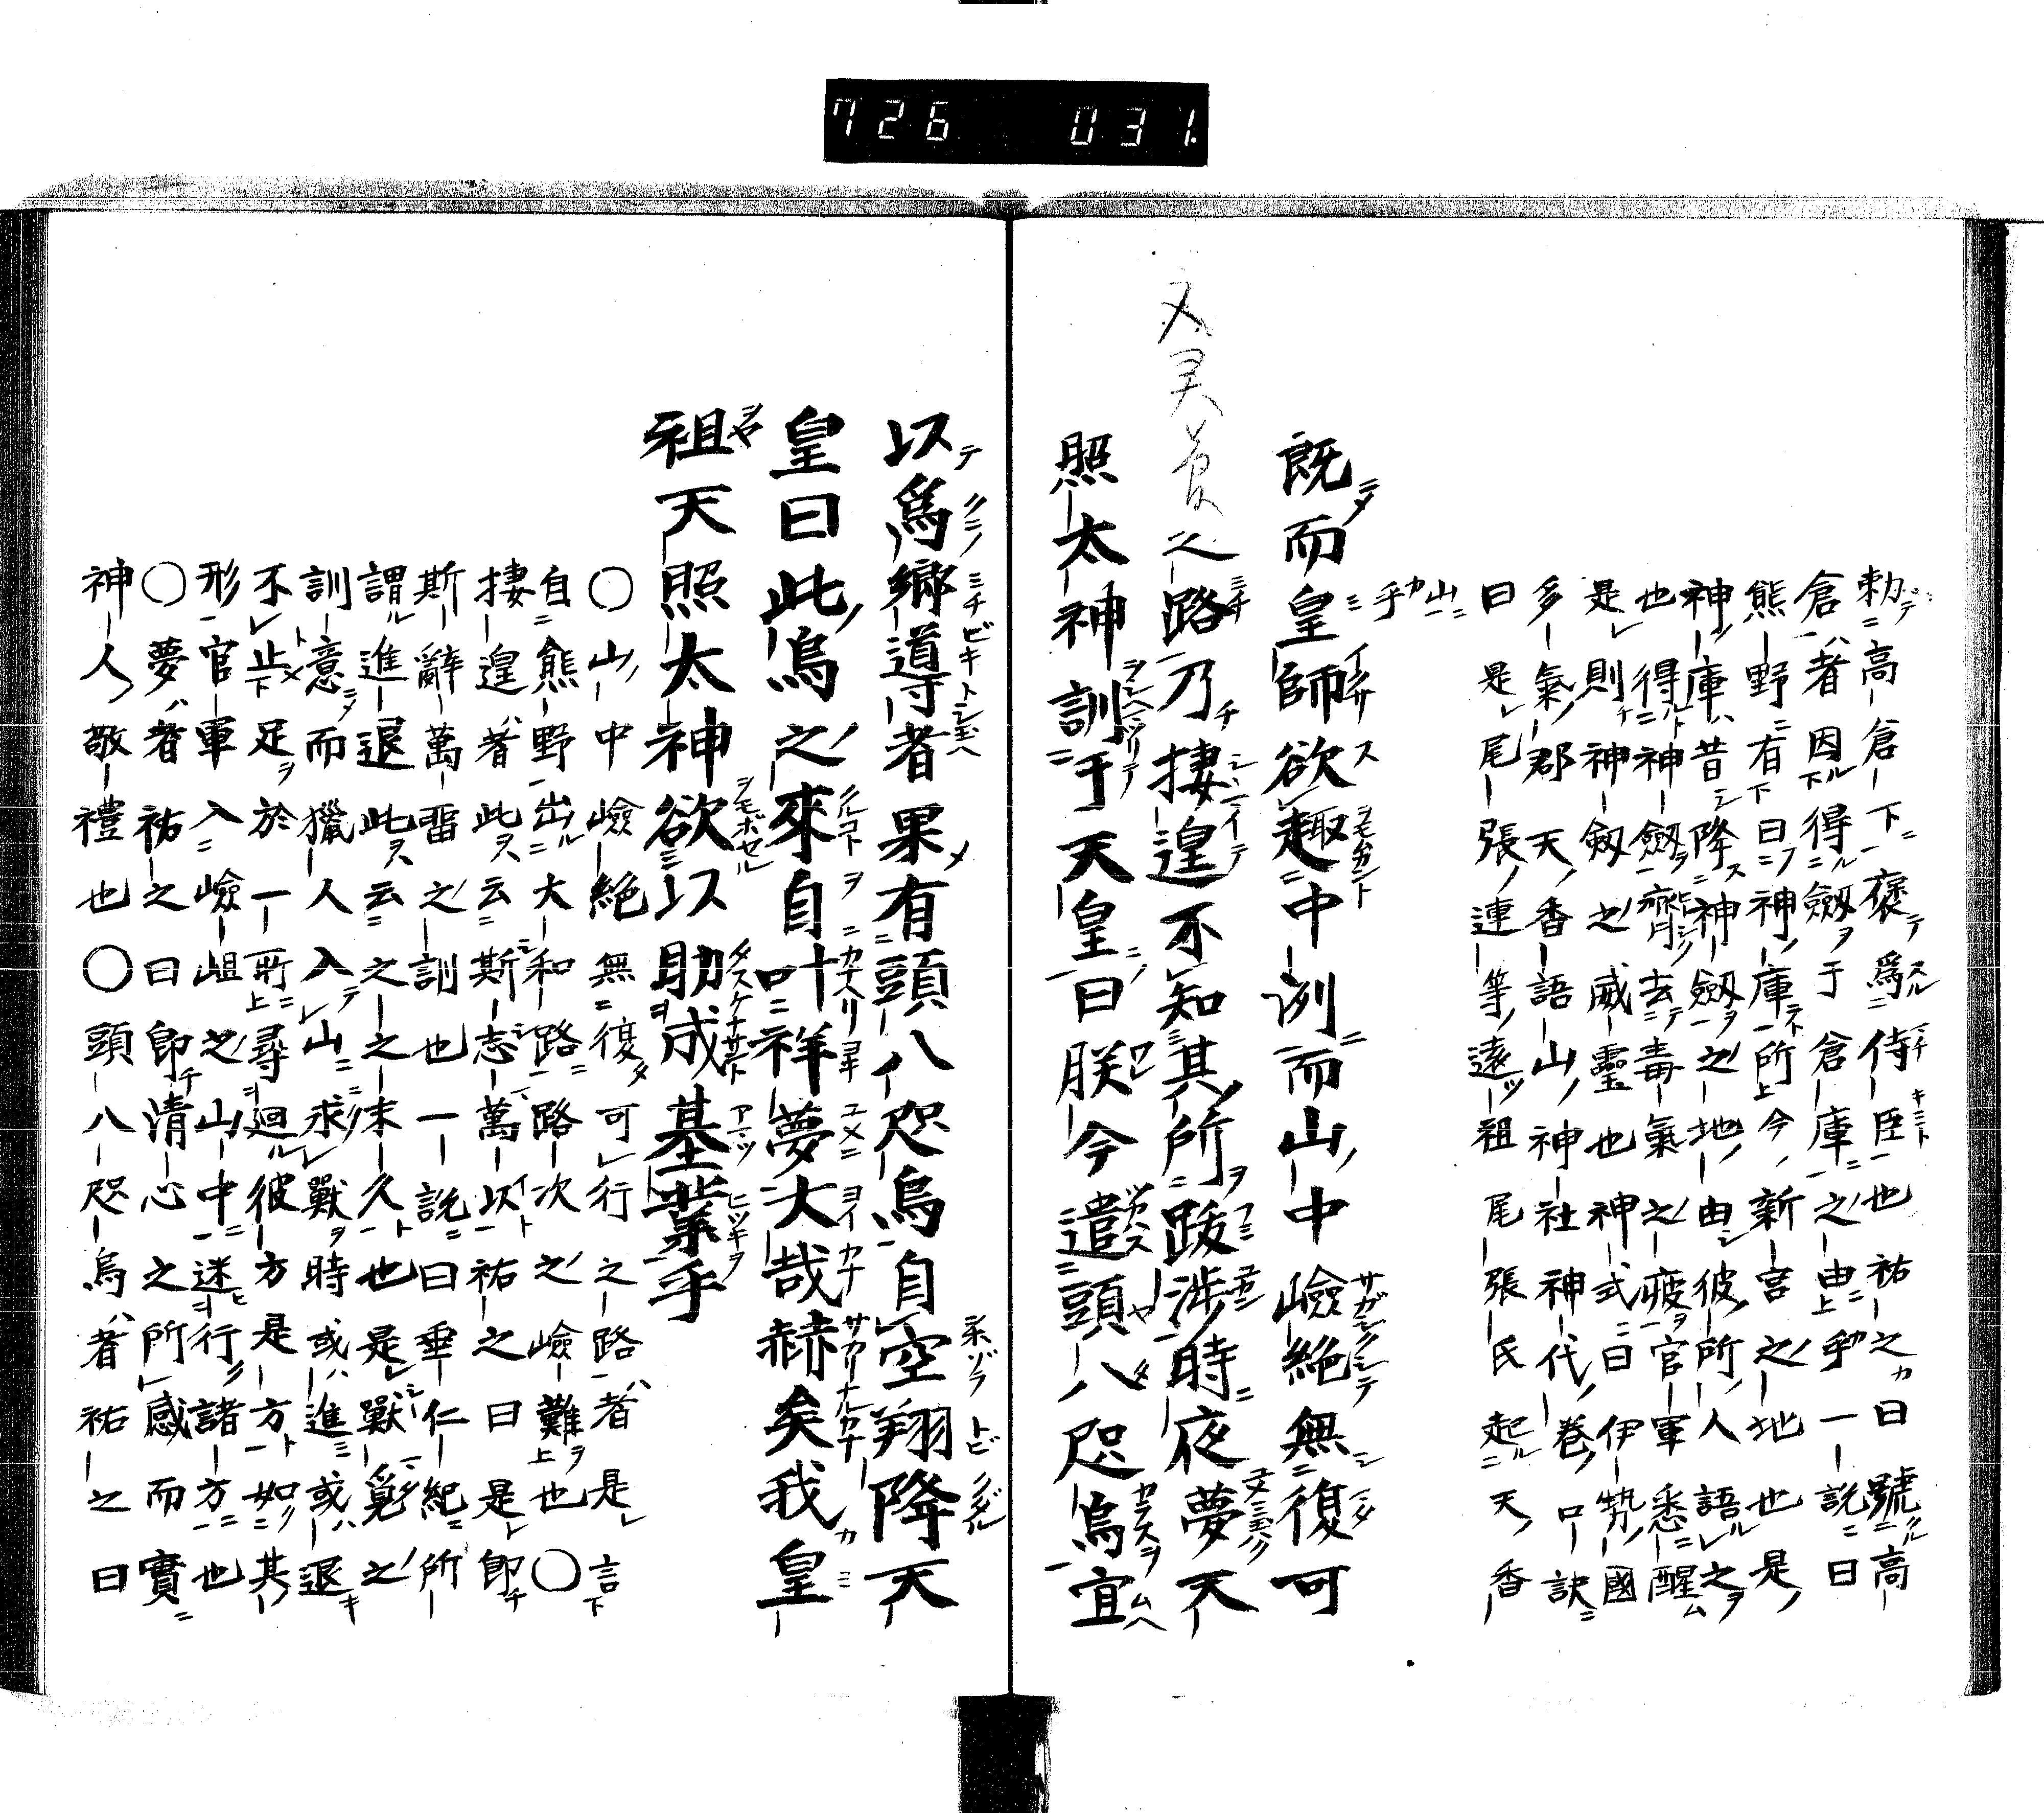 726 031
勅高倉下褒爲侍臣也祐之曰號高
倉者因得劔于倉庫之由乎一説曰
熊野有曰神庫所今新宮之地也是
神庫昔降神劔之地由彼所人語之
也得神劔齊去毒氣之疲官軍悉醒
是則神劔之威靈也神式曰伊勢國
多氣郡天香語山神社神代巻口訣
曰是尾張連等遠祖尾張氏起天香
山乎
既而皇師欲趣中洌而山中嶮絶無復可
之路乃捿遑不知其所跋渉時夜夢天
照太神訓于天皇曰朕今遣頭八咫烏宜
以爲郷導者果有頭八咫烏自空翔降天
皇曰此烏之來自叶祥夢大哉赫矣我皇
祖天照太神欲以助成基業乎
〇山中嶮絶無復可行之路者是言
自熊野出大和路路次之嶮難也〇
捿遑者此云斯志萬以祐之曰是即
斯辭萬畱之訓也一説曰垂仁紀所
謂進退此云之之末久也是獸覓之
訓意而獵人入山求獸時或進或退
不止足於一所尋廻彼方是方如其
形官軍入嶮岨之山中迷行諸方也
〇夢者祐之曰即清心之所感而實
神人敬禮也〇頭八咫烏者祐之曰